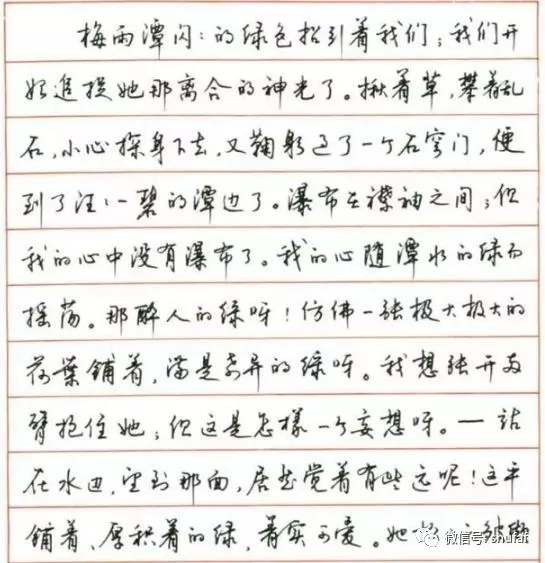 梅雨潭闪:的绿色招引着我们;我们开
始追捉她那离合的神光了。揪着草,攀着乱
石,小心探身下去,又鞠躬过了一个石穹门,便
到了汪:一碧的潭边了。瀑布在襟袖之间;但
我的心中没有瀑布了。我的心随潭水的绿而
摇荡。那醉人的绿呀!仿佛一张极大极大的
荷葉鋪着,满是奇异的绿呀。我想张开两
臂抱住她;但这是怎樣一个妄想呀。—站
在水边,望到那面,居然觉着有些远呢!这平
鋪着、厚积着的绿,着实可爱。她
微信号: